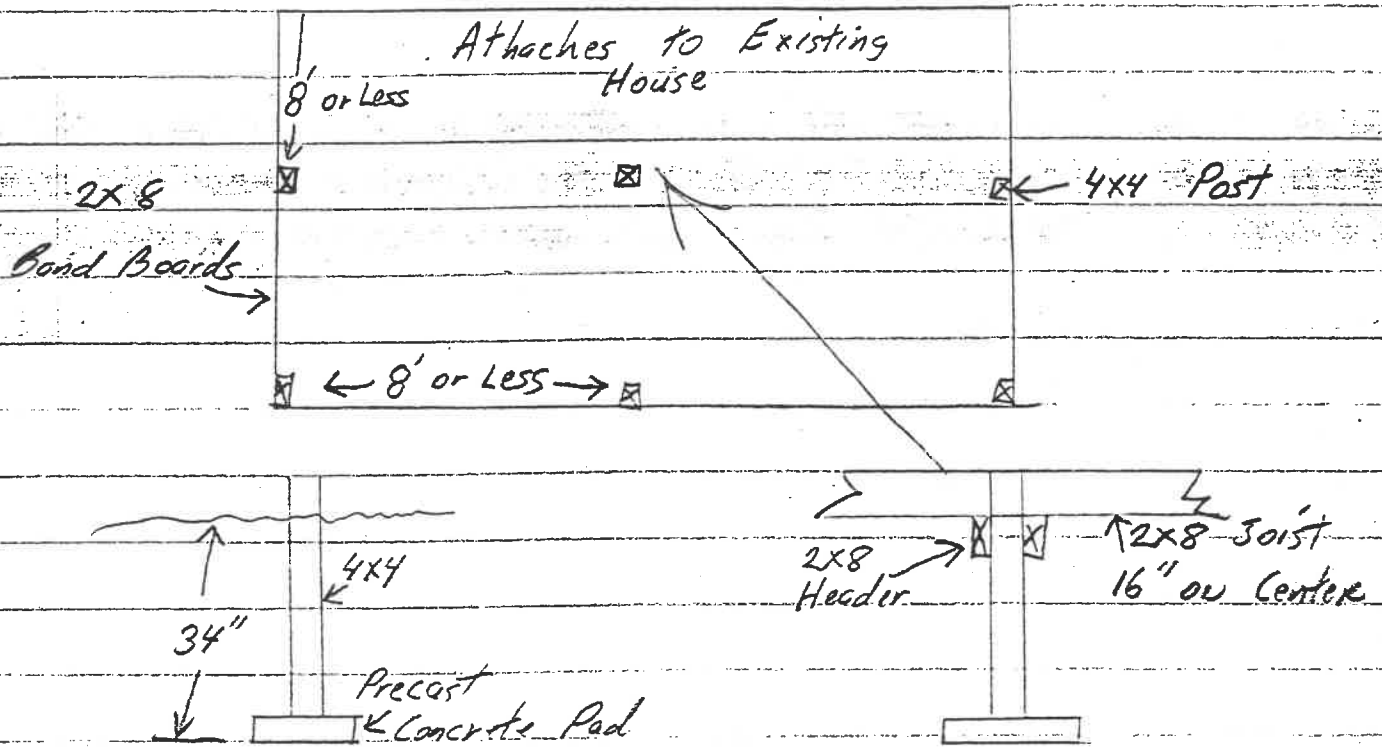 Athaches to Existing
House
8' or Less
2x8
4x4 Post
Band Boards
8' or Less
4x4
34"
Precast
Concrete Pad
2x8
Header
2x8 Joist
16" on Center